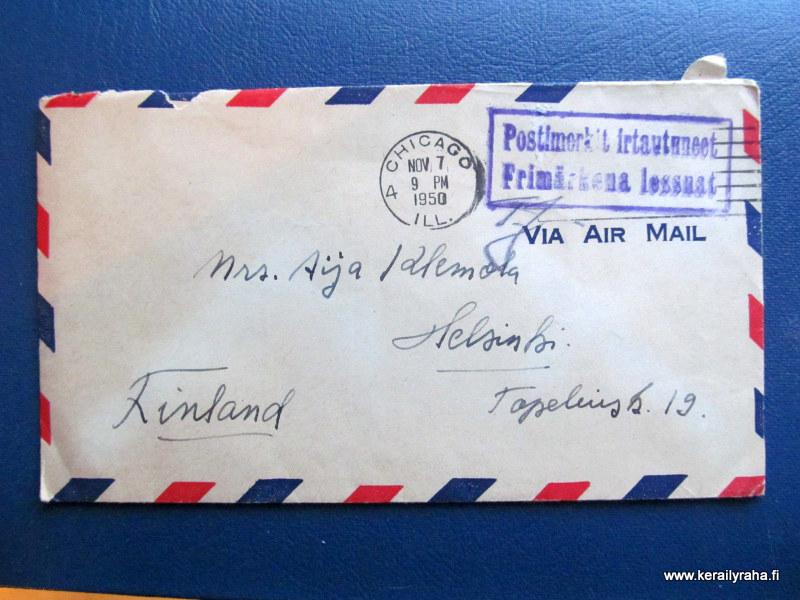 CHICAGO
NOV. 7
9 PM
1950
4
ILL.
Postimerkit irtautuneet
Frimärkena lossnat
VIA AIR MAIL
Mrs. Aija Klemola
Helsinki.
Topeliusk. 19.
Finland
www.kerailyraha.fi